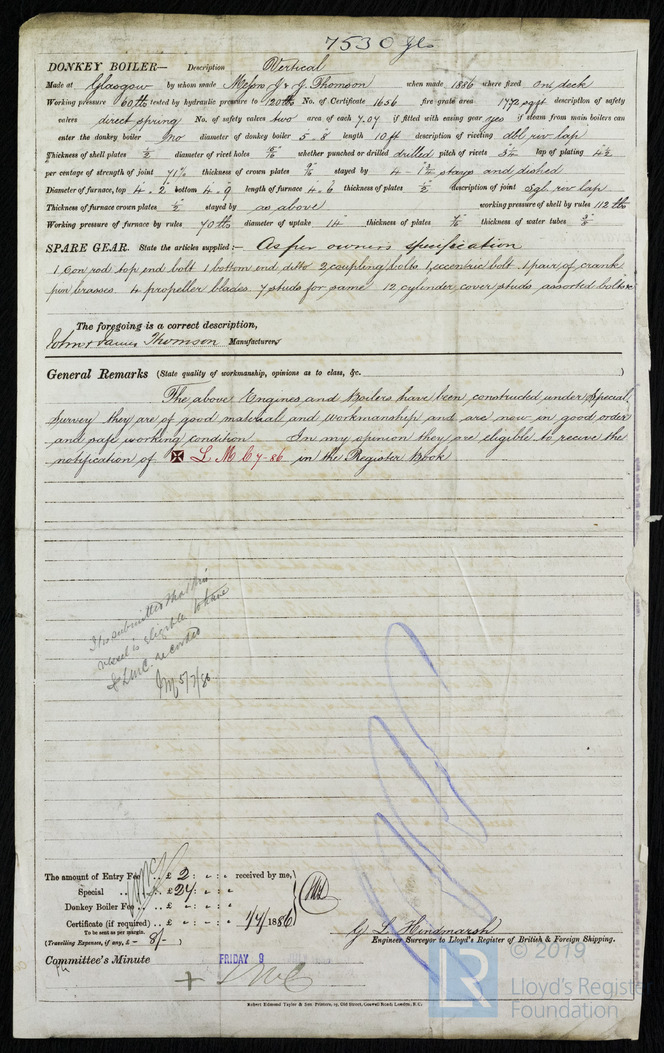 7530 Gls
DONKEY BOILER— Description Vertical
Made at Glasgow by whom made Messrs J & G. Thomson when made 1886 where fixed On deck
Working pressure 60 lbs tested by hydraulic pressure to 120 lbs No. of Certificate 1656 fire grate area 17½ sq ft description of safety
valves direct spring No. of safety valves two area of each 7.07 if fitted with easing gear yes if steam from main boilers can
enter the donkey boiler No diameter of donkey boiler 5.8 length 10 ft description of riveting dbl riv lap
Thickness of shell plates ½ diameter of rivet holes whether punched or drilled drilled pitch of rivets lap of plating 4½
per centage of strength of joint 71% thickness of crown plates stayed by 4 - 1¾ stays and dished
Diameter of furnace, top 4.2 bottom 4.9 length of furnace 4.6 thickness of plates ½ description of joint sgl. riv lap
Thickness of furnace crown plates ½ stayed by as above working pressure of shell by rules 112 lbs
Working pressure of furnace by rules 70 lbs diameter of uptake 14" thickness of plates thickness of water tubes
SPARE GEAR. State the articles supplied:— As per owners specification
1 Con rod top end bolt 1 bottom end ditto 2 coupling bolts 1 eccentric bolt 1 pair of crank
pin brasses 4 propeller blades 7 studs for same 12 cylinder cover studs assorted bolts &c
The foregoing is a correct description,
John & James Thomson Manufacturers
General Remarks (State quality of workmanship, opinions as to class, &c.)
The above Engines and Boilers have been constructed under Special
survey they are of good material and workmanship and are now in good order
and safe working condition. In my opinion they are eligible to recive the
notification of ✠ L M C 7-86 in the Register Book
It is submitted that this
vessel is eligible to have
✠ LMC. recorded
5/7/86
The amount of Entry Fee .. £ 2 : - : - received by me,
Special .. .. £ 24 : - : -
Donkey Boiler Fee .. .. £ - : - : -
Certificate (if required) .. £ - : - : - 1/7/1886
To be sent as per margin.
(Travelling Expenses, if any, £ - 8/- )
G L Hindmarsh
Engineer Surveyor to Lloyd's Register of British & Foreign Shipping.
Committee's Minute FRIDAY 9
+ LMC
Robert Edmund Taylor & Son Printers, 19, Old Street, Goswell Road, London, E.C.
© 2019
LR
Lloyd's Register
Foundation